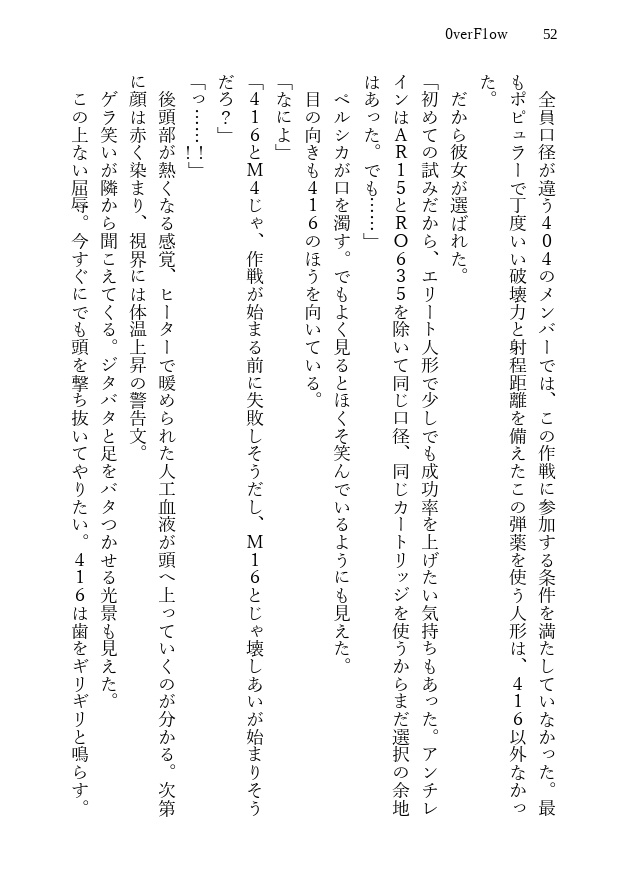 0verFlow
52
　全員口径が違う４０４のメンバーでは、この作戦に参加する条件を満たしていなかった。最
もポピュラーで丁度いい破壊力と射程距離を備えたこの弾薬を使う人形は、４１６以外なかっ
た。
　だから彼女が選ばれた。
「初めての試みだから、エリート人形で少しでも成功率を上げたい気持ちもあった。アンチレ
インはＡＲ１５とＲＯ６３５を除いて同じ口径、同じカートリッジを使うからまだ選択の余地
はあった。でも……」
　ペルシカが口を濁す。でもよく見るとほくそ笑んでいるようにも見えた。
　目の向きも４１６のほうを向いている。
「なによ」
「４１６とＭ４じゃ、作戦が始まる前に失敗しそうだし、Ｍ１６とじゃ壊しあいが始まりそう
だろ？」
「っ……!!」
　後頭部が熱くなる感覚、ヒーターで暖められた人工血液が頭へ上っていくのが分かる。次第
に顔は赤く染まり、視界には体温上昇の警告文。
　ゲラ笑いが隣から聞こえてくる。ジタバタと足をバタつかせる光景も見えた。
　この上ない屈辱。今すぐにでも頭を撃ち抜いてやりたい。４１６は歯をギリギリと鳴らす。